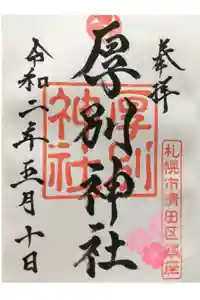 奉拝
厚別神社
令和二年五月十日
厚別神社
札幌市清田区平岡